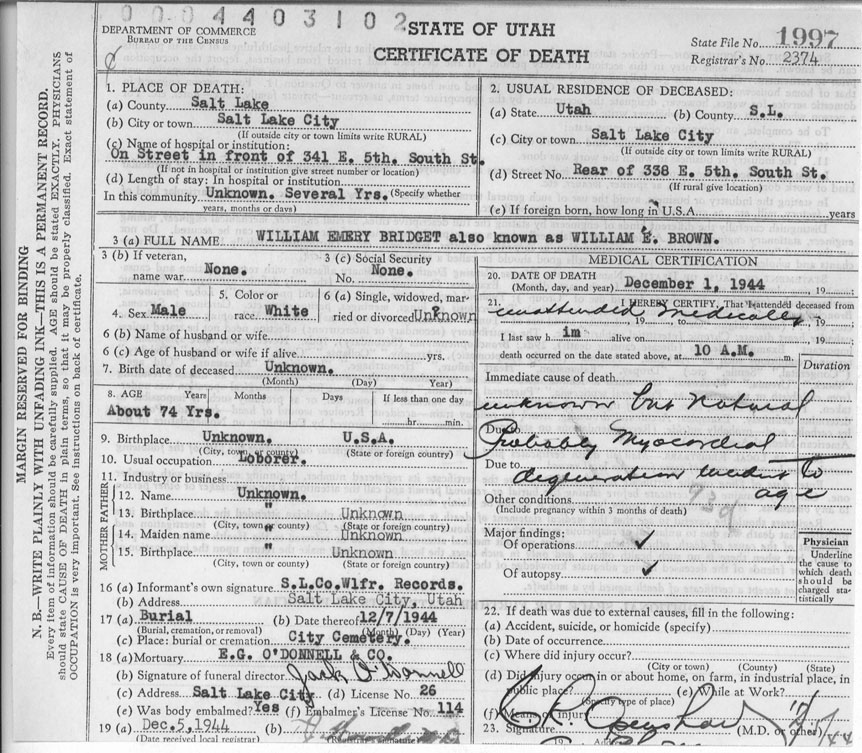 0004403102
DEPARTMENT OF COMMERCE
BUREAU OF THE CENSUS
STATE OF UTAH
CERTIFICATE OF DEATH
State File No. 1997
Registrar's No. 2374
MARGIN RESERVED FOR BINDING
N. B.—WRITE PLAINLY WITH UNFADING INK—THIS IS A PERMANENT RECORD.
Every item of information should be carefully supplied. AGE should be stated EXACTLY. PHYSICIANS
should state CAUSE OF DEATH in plain terms, so that it may be properly classified. Exact statement of
OCCUPATION is very important. See instructions on back of certificate.
1. PLACE OF DEATH:
(a) County Salt Lake
(b) City or town Salt Lake City
(If outside city or town limits write RURAL)
(c) Name of hospital or institution:
On Street in front of 341 E. 5th. South St.
(If not in hospital or institution give street number or location)
(d) Length of stay: In hospital or institution
In this community Unknown. Several Yrs. (Specify whether
years, months or days)
2. USUAL RESIDENCE OF DECEASED:
(a) State Utah (b) County S.L.
(c) City or town Salt Lake City
(If outside city or town limits write RURAL)
(d) Street No. Rear of 338 E. 5th. South St.
(If rural give location)
(e) If foreign born, how long in U.S.A. years
3 (a) FULL NAME WILLIAM EMERY BRIDGET also known as WILLIAM E. BROWN.
3 (b) If veteran,
name war None.
3 (c) Social Security
No. None.
4. Sex Male
5. Color or
race White
6 (a) Single, widowed, mar-
ried or divorced Unknown
6 (b) Name of husband or wife
6 (c) Age of husband or wife if alive yrs.
7. Birth date of deceased Unknown.
(Month) (Day) (Year)
8. AGE Years Months Days If less than one day
About 74 Yrs. hr. min.
9. Birthplace Unknown. U.S.A.
(City, town or county) (State or foreign country)
10. Usual occupation Loborer.
11. Industry or business
FATHER
12. Name Unknown.
13. Birthplace " Unknown
(City, town or county) (State or foreign country)
MOTHER
14. Maiden name " Unknown
15. Birthplace " Unknown
(City, town or county) (State or foreign country)
16 (a) Informant's own signature S.L.Co.Wlfr. Records.
(b) Address Salt Lake City, Utah
17 (a) Burial (b) Date thereof 12/7/1944
(Burial, cremation, or removal) (Month) (Day) (Year)
(c) Place: burial or cremation City Cemetery.
18 (a) Mortuary E.G. O'DONNELL & CO.
(b) Signature of funeral director Jack O'Donnell
(c) Address Salt Lake City (d) License No. 26
(e) Was body embalmed? Yes (f) Embalmer's License No. 114
19 (a) Dec. 5, 1944 (b)
(Date received local registrar) (Registrar's signature)
MEDICAL CERTIFICATION
20. DATE OF DEATH
(Month, day, and year) December 1, 1944, 19
21. I HEREBY CERTIFY, That I attended deceased from
unattended medically
, 19 , to , 19
I last saw h im alive on , 19
death occurred on the date stated above, at 10 A.M. m.
Duration
Immediate cause of death
unknown but natural
Due to Probably Myocardial
Due to degeneration incident to
age
Other conditions 93d
(Include pregnancy within 3 months of death)
Major findings:
Of operations ✓
Of autopsy ✓
Physician
Underline
the cause to
which death
should be
charged sta-
tistically
22. If death was due to external causes, fill in the following:
(a) Accident, suicide, or homicide (specify)
(b) Date of occurrence
(c) Where did injury occur?
(City or town) (County) (State)
(d) Did injury occur in or about home, on farm, in industrial place, in
public place? (e) While at Work?
(Specify type of place)
(f) Means of Injury
23. Signature (M.D. or other)